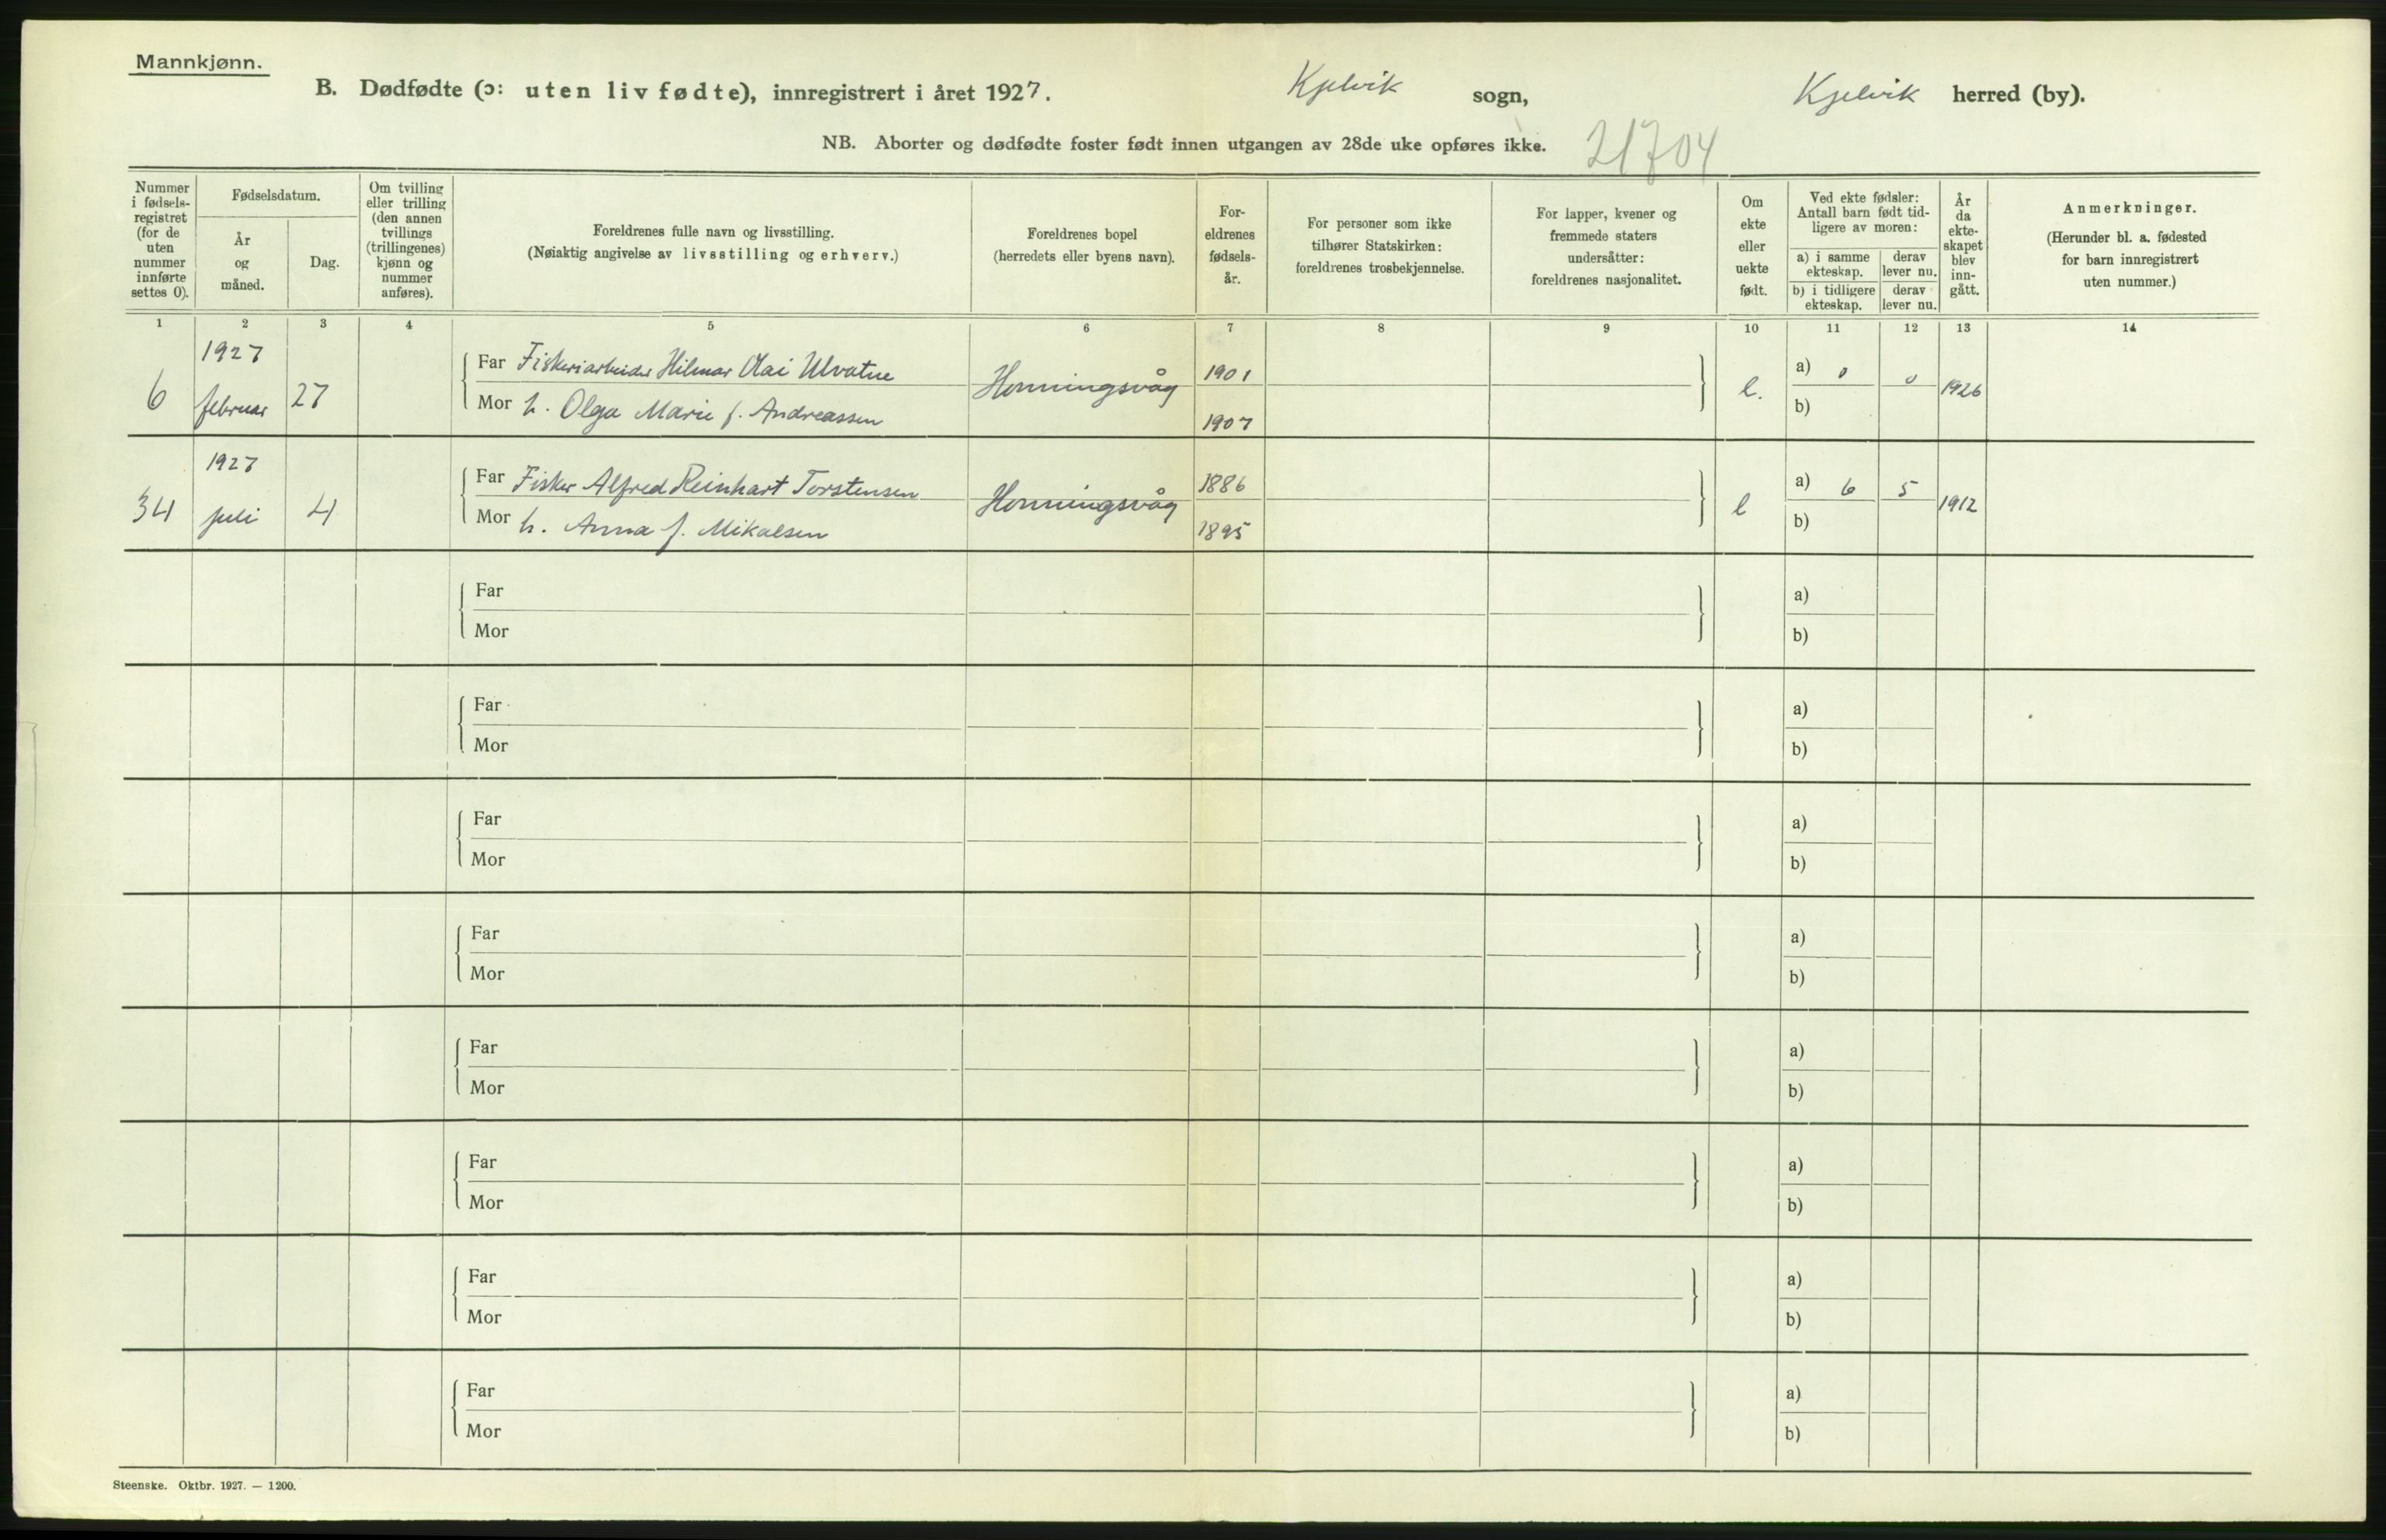 Mannkjønn.
B. Dødfødte (ɔ: uten liv fødte), innregistrert i året 1927. Kjelvik sogn, Kjelvik herred (by).
NB. Aborter og dødfødte foster født innen utgangen av 28de uke opføres ikke. 21704
Nummer i fødsels- registret (for de uten nummer innførte settes 0).
Fødselsdatum.
År og måned.
Dag.
Om tvilling eller trilling (den annen tvillings (trillingenes) kjønn og nummer anføres).
Foreldrenes fulle navn og livsstilling.
(Nøiaktig angivelse av livsstilling og erhverv.)
Foreldrenes bopel
(herredets eller byens navn).
For- eldrenes fødsels- år.
For personer som ikke tilhører Statskirken: foreldrenes trosbekjennelse.
For lapper, kvener og fremmede staters undersåtter: foreldrenes nasjonalitet.
Om ekte eller uekte født.
Ved ekte fødsler: Antall barn født tid- ligere av moren:
a) i samme ekteskap.
derav lever nu.
b) i tidligere ekteskap.
derav lever nu.
År da ekte- skapet blev inn- gått.
Anmerkninger.
(Herunder bl. a. fødested for barn innregistrert uten nummer.)
1 2 3 4 5 6 7 8 9 10 11 12 13 14
6 1927 februar 27
Far Fiskeriarbeider Hilmar Olai Ulvatne
Mor h. Olga Marie f. Andreassen
Honningsvåg 1901 1907 e. a) 0 0 1926
b)
34 1927 juli 4
Far Fisker Alfred Reinhart Torstensen
Mor h. Anna f. Mikalsen
Honningsvåg 1886 1895 e a) 6 5 1912
b)
Far a)
Mor b)
Far a)
Mor b)
Far a)
Mor b)
Far a)
Mor b)
Far a)
Mor b)
Far a)
Mor b)
Far a)
Mor b)
Far a)
Mor b)
Steenske. Oktbr. 1927. — 1200.